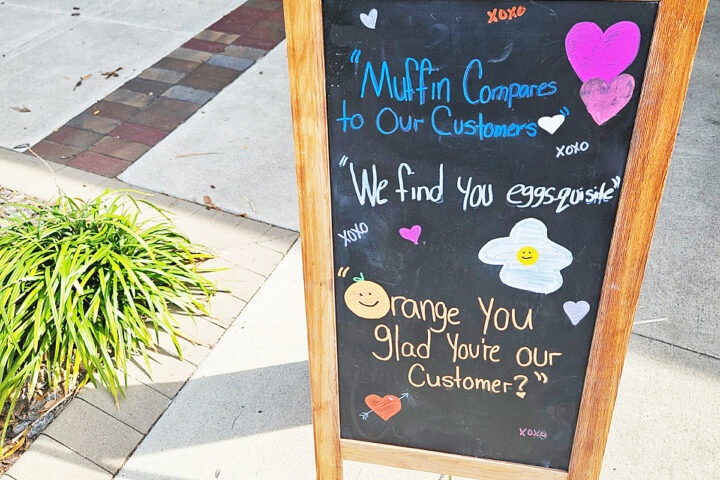 XOXO
"Muffin Compares
to Our Customers"
XOXO
"We find you eggs-quisite"
XOXO
"Orange You
glad You're our
Customer?"
XOXO